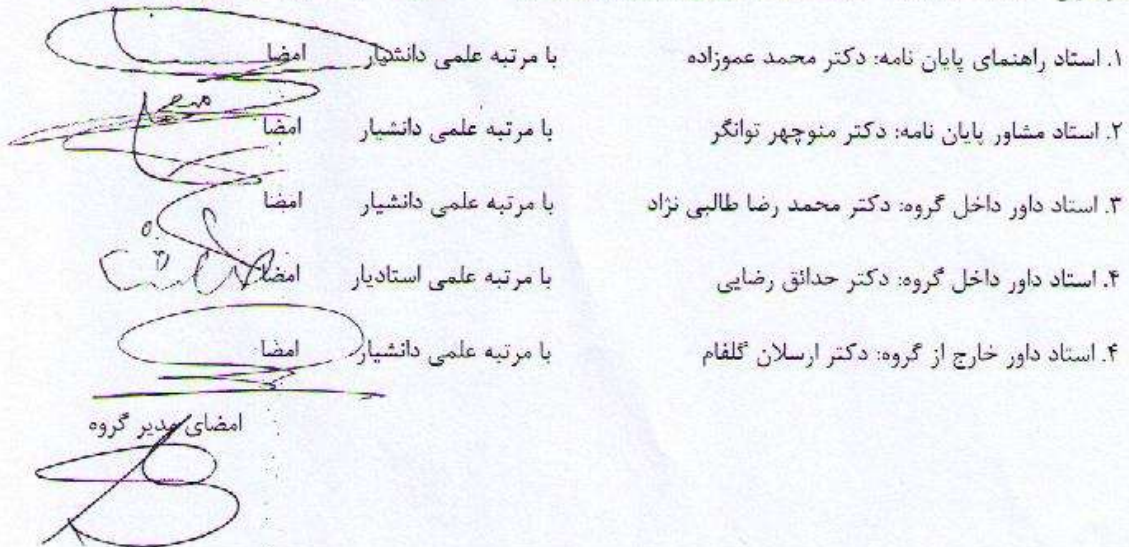 ۱. استاد راهنمای پایان نامه: دکتر محمد عموزاده با مرتبه علمی دانشیار امضا
۲. استاد مشاور پایان نامه: دکتر منوچهر توانگر با مرتبه علمی دانشیار امضا
۳. استاد داور داخل گروه: دکتر محمد رضا طالبی نژاد با مرتبه علمی دانشیار امضا
۴. استاد داور داخل گروه: دکتر حدائق رضایی با مرتبه علمی استادیار امضا
۴. استاد داور خارج از گروه: دکتر ارسلان گلفام با مرتبه علمی دانشیار امضا
امضای مدیر گروه